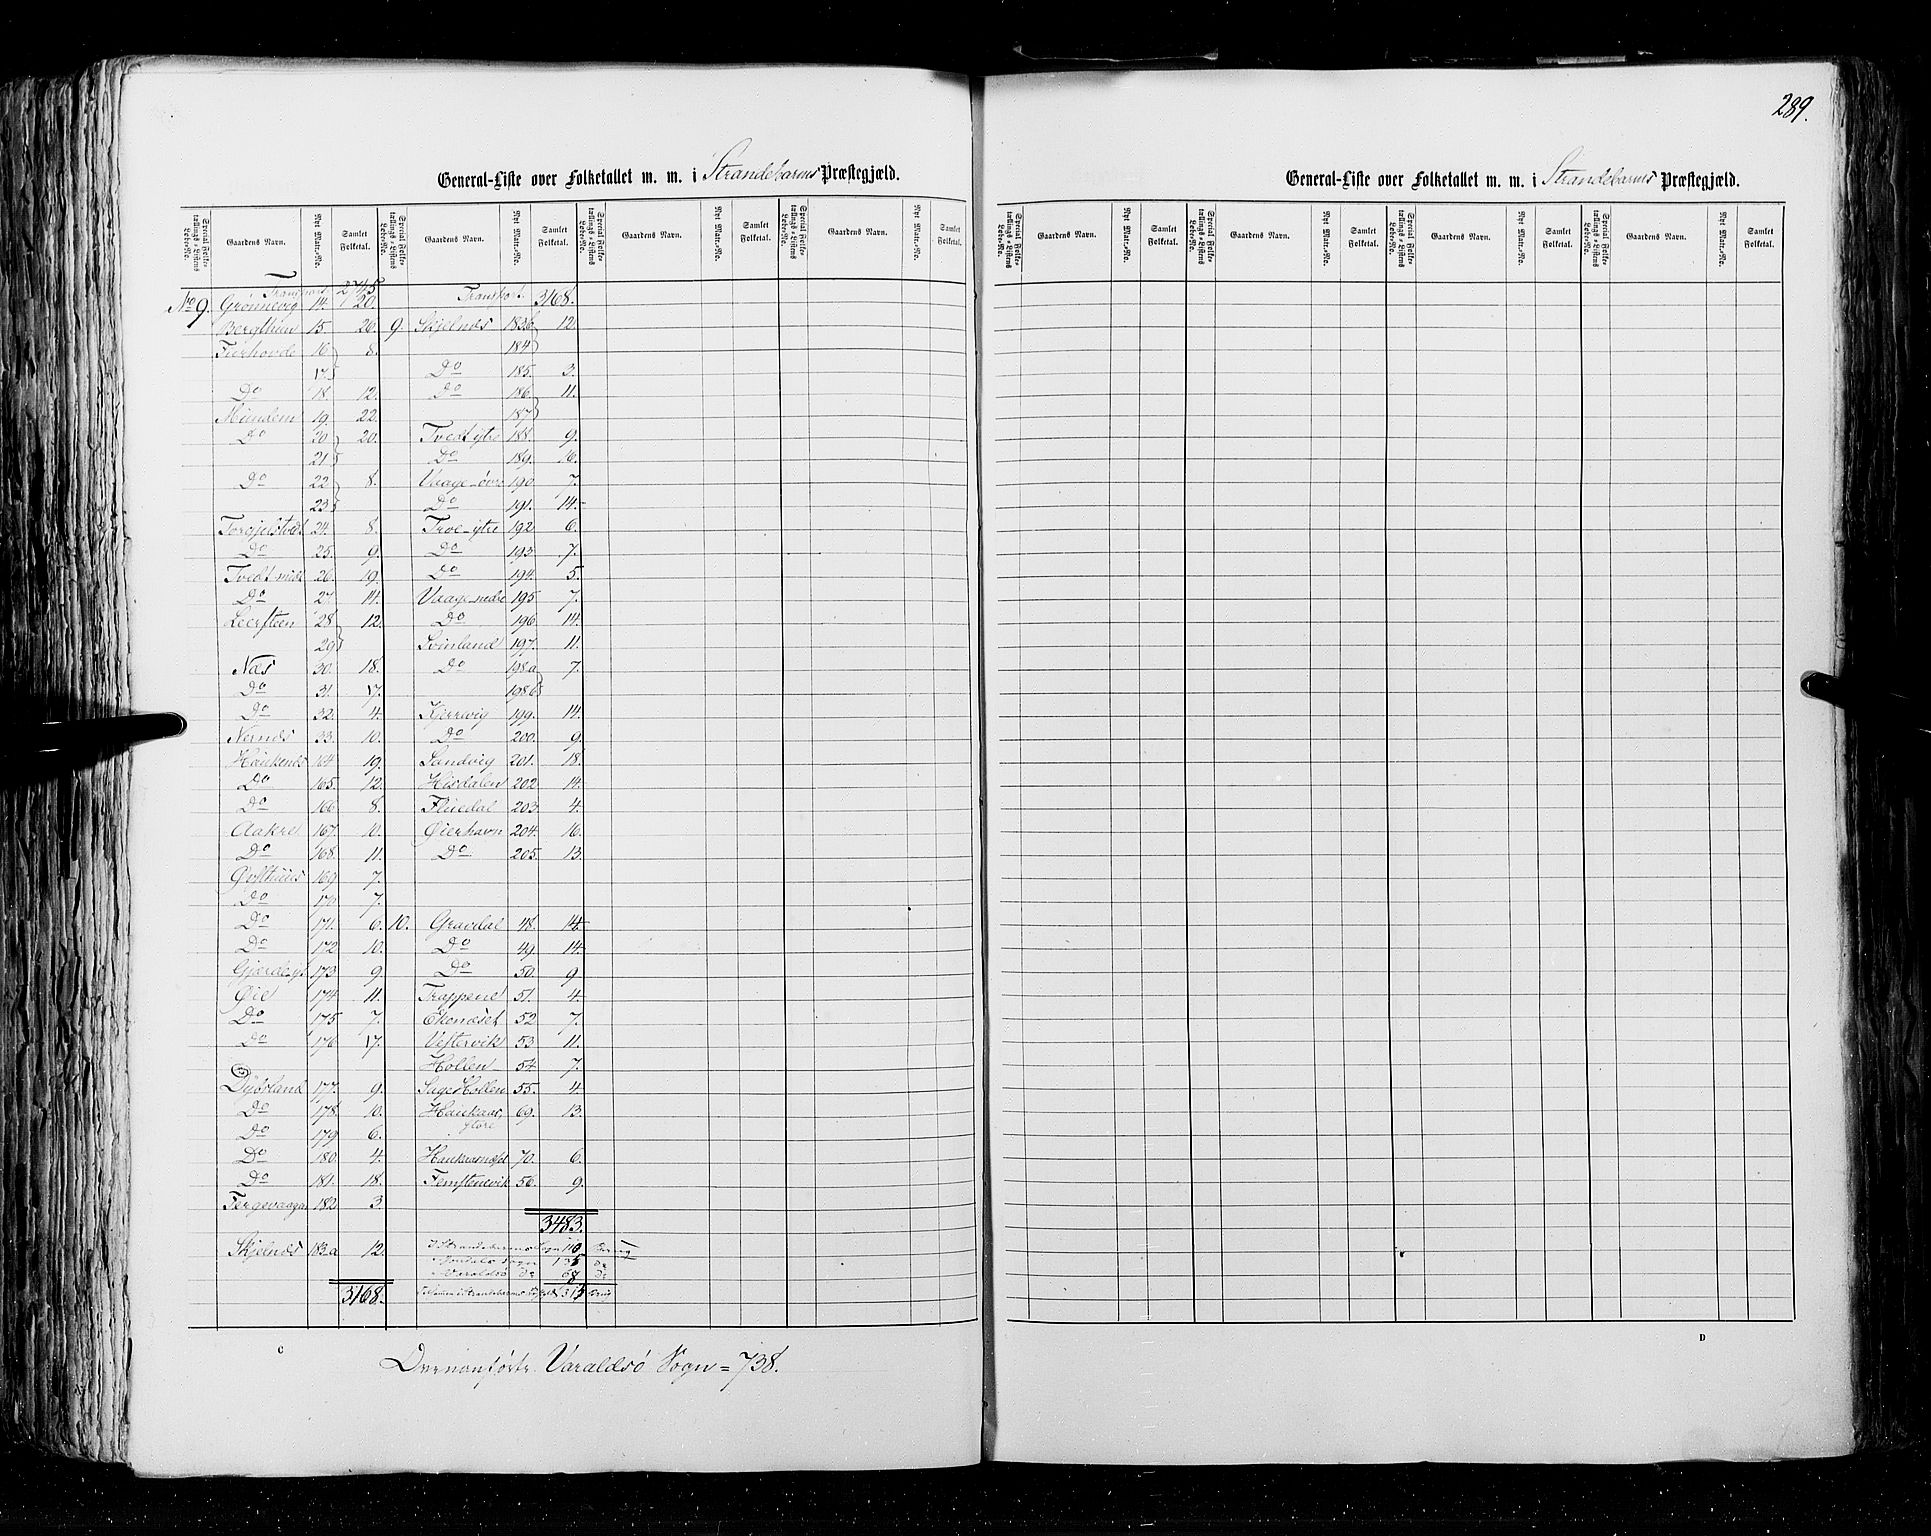 289.
General-Liste over Folketallet m. m. i Strandebarms Præstegjæld.
Special Folketællings-Listens Løbe-No. Gaardens Navn. Nyt Matr.-No. Samlet Folketal. Special Folketællings-Listens Løbe-No. Gaardens Navn. Nyt Matr.-No. Samlet Folketal. Special Folketællings-Listens Løbe-No. Gaardens Navn. Nyt Matr.-No. Samlet Folketal. Special Folketællings-Listens Løbe-No. Gaardens Navn. Nyt Matr.-No. Samlet Folketal.
Transport 2745
No 9. Grønnevig 14. 20.
Bergthun 15. 26.
Furhovde 16 8.
17
Do 18. 12.
Mundem 19. 22.
Do 20 20.
21
Do 22 8.
23
Torgjelstvedt 24. 8.
Do 25. 9.
Tvedt midt 26. 19.
Do 27. 14.
Leersteen 28 12.
29
Næs 30. 18.
Do 31. 17.
Do 32. 4.
Nernæs 33. 10.
Haukenæs 164 19.
Do 165. 12.
Do 166. 8.
Aakre 167. 10.
Do 168. 11.
Østhuus 169 7.
Do 170 7.
Do 171. 6.
Do 172 10.
173 9.
Øie 174 11.
Do 175. 7.
Do 176 17.
Dysvland 177. 9.
Do 178. 10.
Do 179 6.
Do 180. 4.
Do 181. 18.
Fergevaagen 182 3.
Skjelnæs 183a 12.
3168.
Transport 3168.
9. Skjelnæs 183b 12.
184
Do 185. 3.
Do 186. 11.
187
Tvedt ytre 188. 9.
Do 189. 16.
Vaage øvre 190 7.
Do 191. 14.
Troe ytre 192 6.
Do 193 7.
Do 194. 5.
Vaage nedre 195 7.
Do 196. 14.
Svinland 197. 11.
Do 198a 7.
198b
Kjerrvig 199. 14.
Do 200. 9.
Sandvig 201. 18.
Hisdalen 202. 14.
Fluedal 203. 4.
Øierhavn 204. 16.
Do 205. 13.
10. Gravdal 48. 14.
Do 49. 14.
Do 50. 9.
Trappene 51. 4.
Ekenæset 52 7.
Vestervik 53 11.
Hollen 54 7.
Sage Hollen 55. 4.
Haukaas, 69. 13.
store
70. 6.
Femstenevik 56. 9.
3483.
I Strandebarms Sogn 110
Jondals Sogn 135 do
Varaldsö do 68 do
313
Varaldsö Sogn = 738.
C
General-Liste over Folketallet m. m. i Strandebarms Præstegjæld.
Special Folketællings-Listens Løbe-No. Gaardens Navn. Nyt Matr.-No. Samlet Folketal. Special Folketællings-Listens Løbe-No. Gaardens Navn. Nyt Matr.-No. Samlet Folketal. Special Folketællings-Listens Løbe-No. Gaardens Navn. Nyt Matr.-No. Samlet Folketal. Special Folketællings-Listens Løbe-No. Gaardens Navn. Nyt Matr.-No. Samlet Folketal.
D